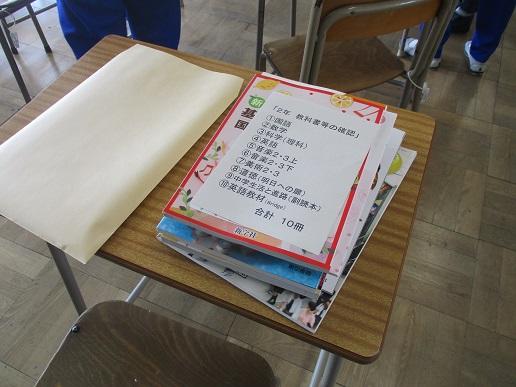 「2年 教科書等の確認」
①国語
②数学
③科学(理科)
④英語
⑤音楽2・3上
⑥音楽2・3下
⑦美術2・3
⑧道徳(明日への扉)
⑨中学生活と進路(副読本)
⑩英語教材(Bridge)
合計 10冊
新
基
国
新学社